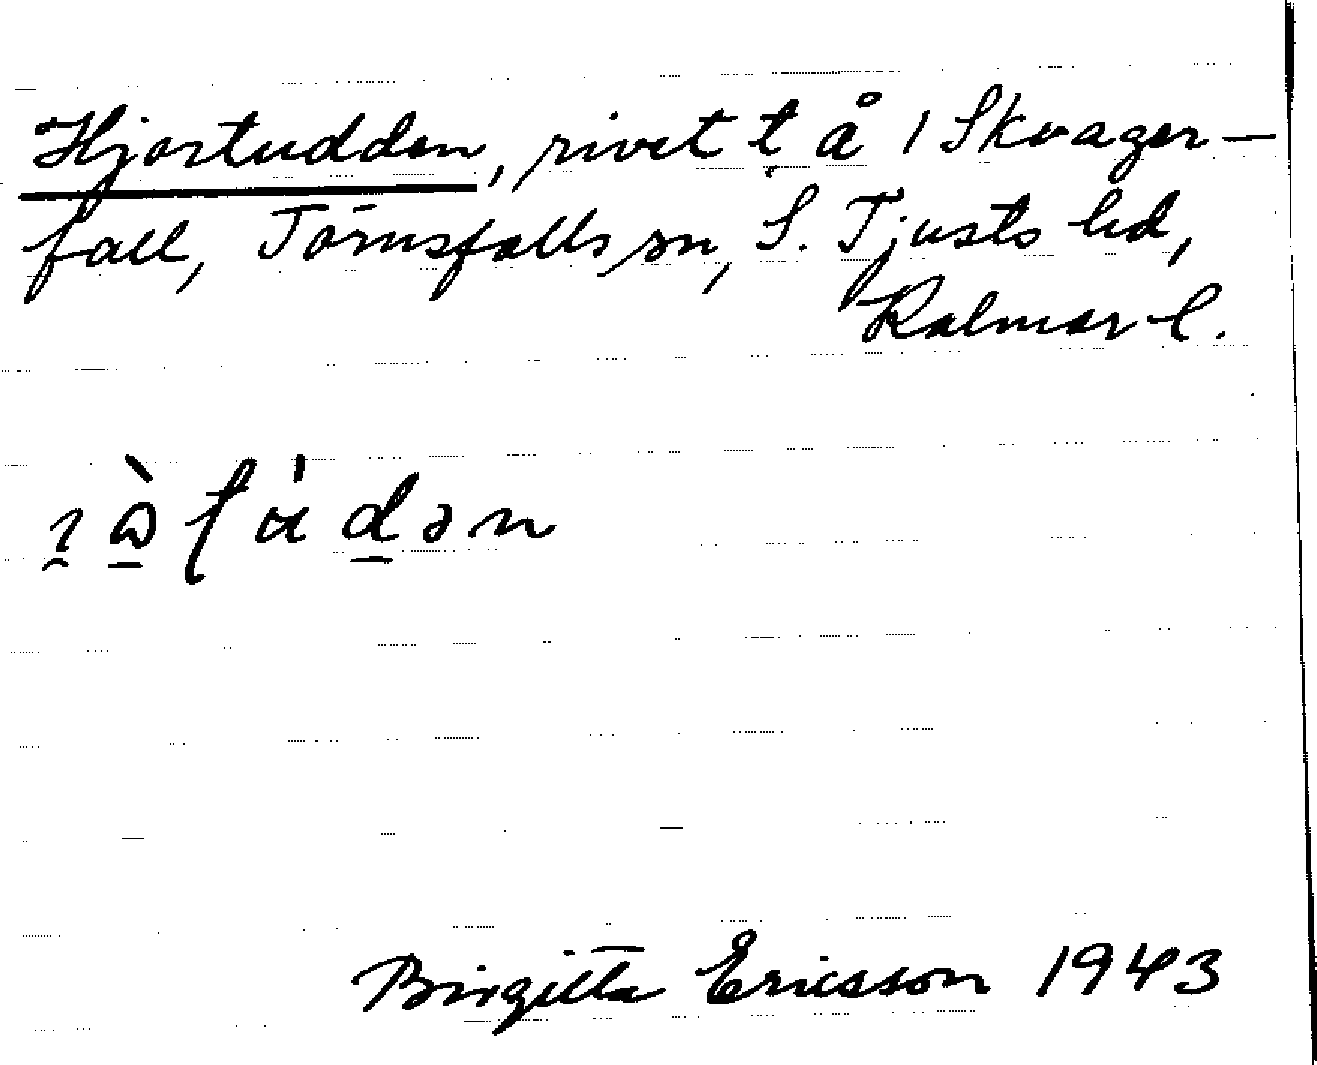 Hjortudden, rivet t å 1 Skvager-
fall, Törnsfalls sn, S. Tjusts hd,
Kalmar l.
Birgitta Ericsson 1943